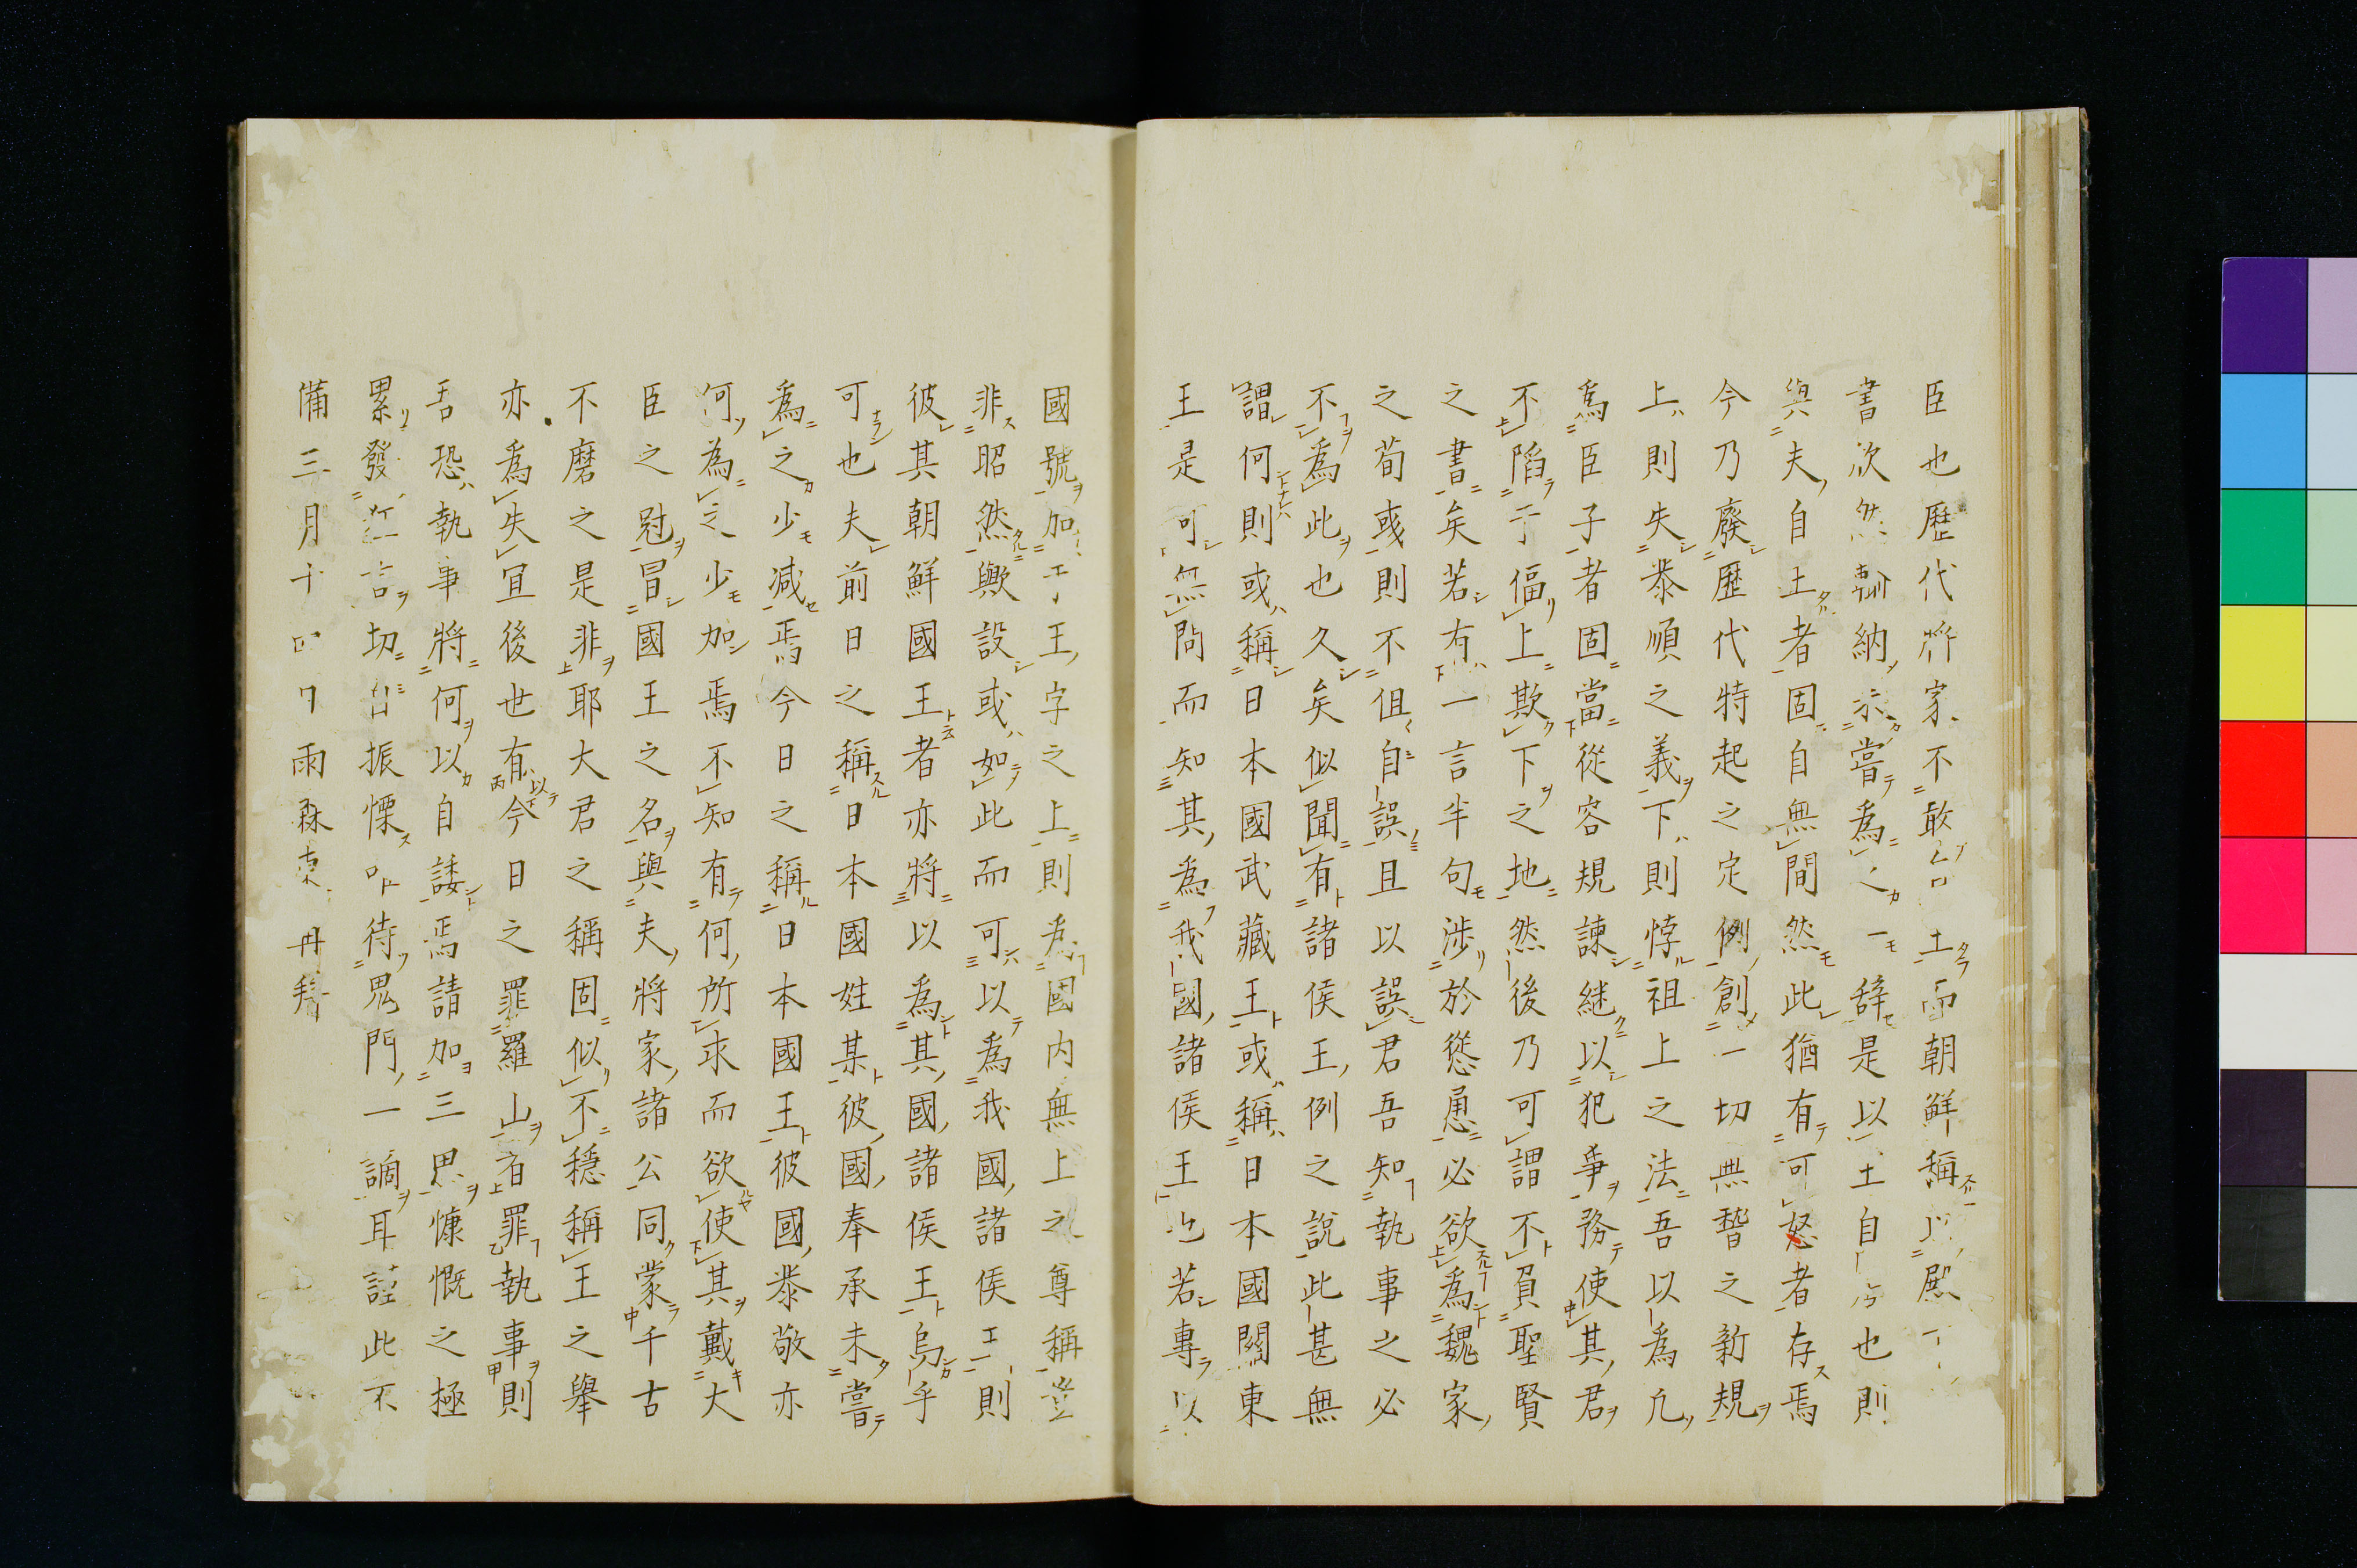 臣也歷代將家不敢 王而朝鮮稱以殿
書次然 納示嘗為之一辭是以王自 也則
與夫自王者固自無間然此猶有可怒者存焉
今乃廢歷代特起之定例創一切無稽之新規
上則失恭順之義下則悖祖上之法吾以為凡
為臣子者固當從容規諫継以犯爭務使其君
不陷于偪上欺下之地然後乃可謂不負聖賢
之書矣若有一言半句渉於慫慂必欲為魏家
之荀彧則不但自誤且以誤君吾知執事之必
不為此也久矣似聞有諸侯王例之說此甚無
謂何則或稱日本國武藏王或稱日本國關東
王是可無問而知其為我國諸侯王也若專以
國號加于王字之上則為國内無上之尊稱豈
非昭然歟設或如此而可以為我國諸侯王則
彼其朝鮮國王者亦將以為其國諸侯王烏乎
可也夫前日之稱日本國姓某彼國奉承未嘗
為之少减焉今日之稱日本國王彼國恭敬亦
何為之少加焉不知有何所求而欲使其戴大
臣之冠冒國王之名與夫將家諸公同蒙千古
不磨之是非耶大君之稱固似不穩稱王之舉
亦為失宜後也有以今日之罪羅山者罪執事則
吾恐執事將何以自諉焉請加三思慷慨之極
累發狂言切 振慄 待鬼門一謫耳謹此不
備三月十四日雨森東再拜